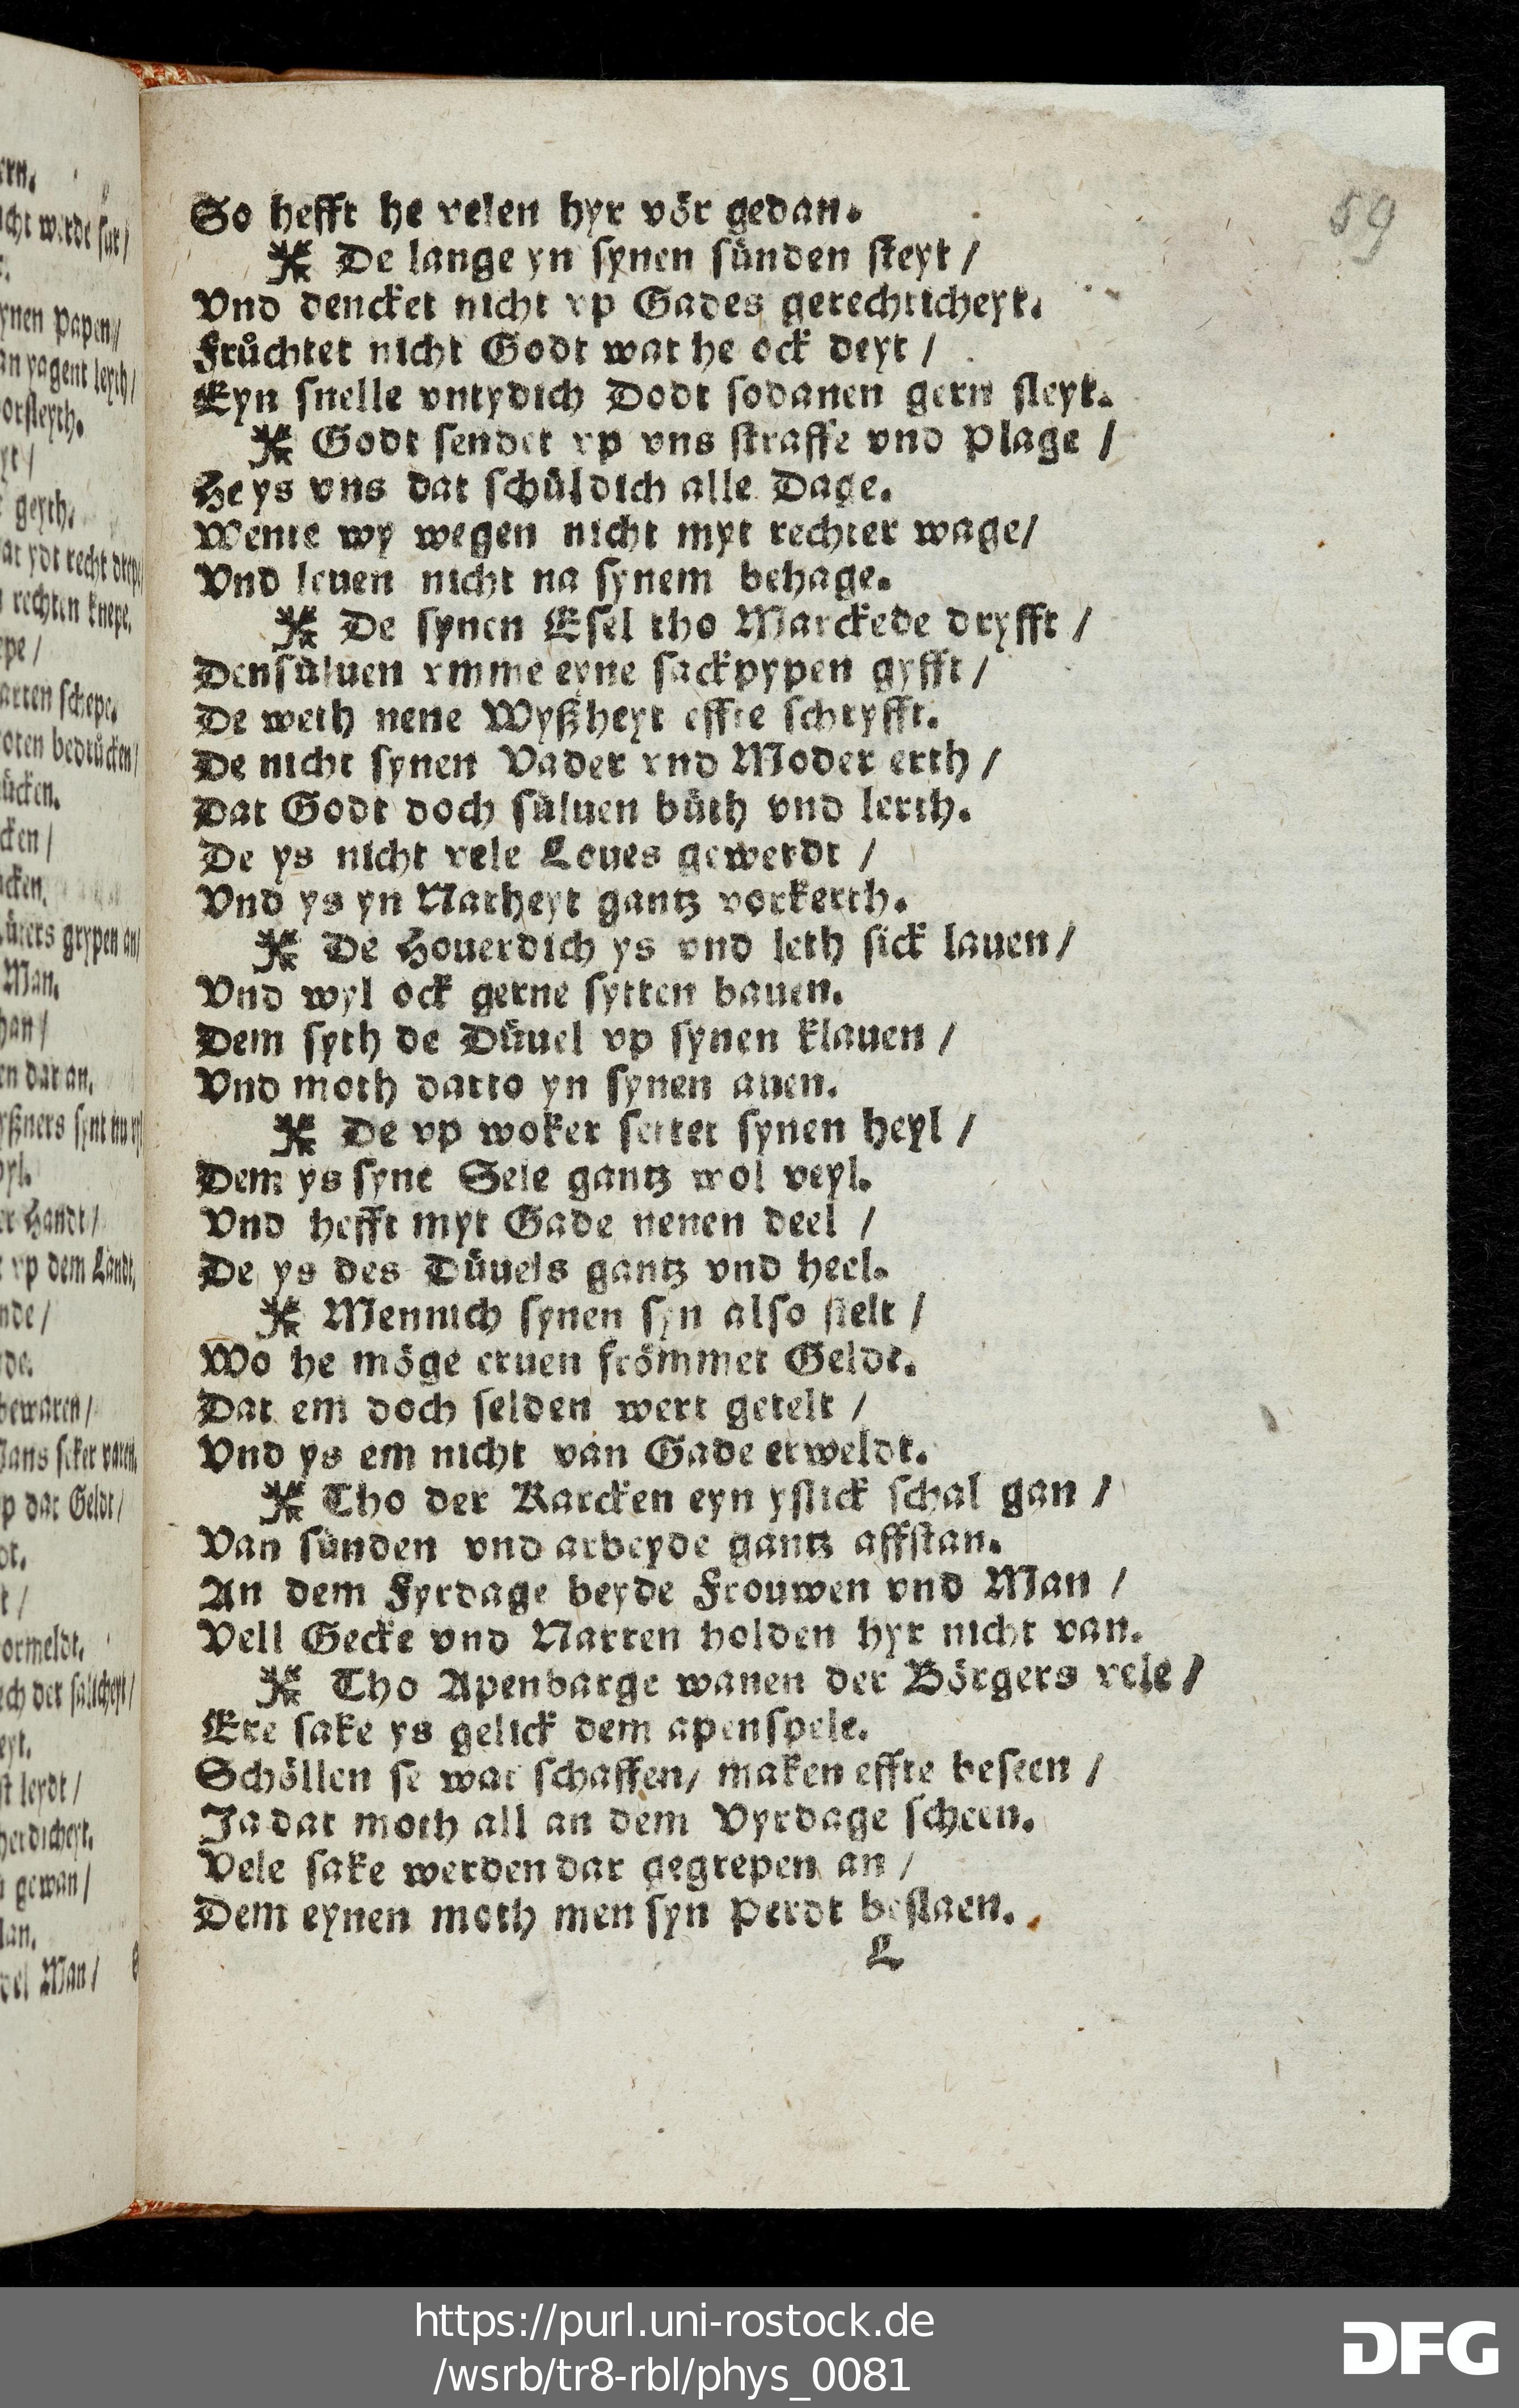 59
So hefft he velen hyr vör gedan.
De lange yn synen sünden steyt /
Vnd dencket nicht vp Gades gerechticheyt.
Früchtet nicht Godt wat he ock deyt /
Eyn snelle vntydich Dodt sodanen gern sleyt.
Godt sendet vp vns straffe vnd Plage /
He ys vns dat schüldich alle Dage.
Wente wy wegen nicht myt rechter wage/
Vnd leuen nicht na synem behage.
De synen Esel tho Marckede dryfft /
Densüluen vmme eyne sackpypen gyfft /
De weth nene Wyßheyt effte schryfft.
De nicht synen Vader vnd Moder erth /
Dat Godt doch süluen büth vnd lerth.
De ys nicht vele Loues gewerdt /
Vnd ys yn Narheyt gantz vorkerth.
De Houerdich ys vnd leth sick lauen/
Vnd wyl ock gerne sytten bauen.
Dem syth de Düuel vp synen klauen /
Vnd moth datto yn synen auen.
De vp woker settet synen heyl /
Dem ys syne Sele gantz wol veyl.
Vnd hefft myt Gade nenen deel /
De ys des Düuels gantz vnd heel.
Mennich synen syn also stelt /
Wo he möge eruen frömmet Geldt.
Dat em doch selden wert getelt /
Vnd ys em nicht van Gade erweldt.
Tho der Karcken eyn yslick schal gan /
Van sünden vnd arbeyde gantz affstan.
An dem Fyrdage beyde Frouwen vnd Man /
Vell Gecke vnd Narren holden hyr nicht van.
Tho Apenbarge wanen der Börgers vele /
Ere sake ys gelick dem apenspele.
Schöllen se wat schaffen/ maken effte beseen /
Ja dat moth all an dem Vyrdage scheen.
Vele sake werden dar gegrepen an /
Dem eynen moth men syn Perdt beslaen.
L
https://purl.uni-rostock.de
/wsrb/tr8-rbl/phys_0081
DFG